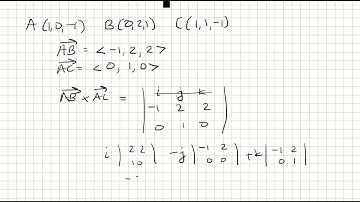 A(1,0,-1) B(0,2,1) C(1,1,-1)
AB = < -1, 2, 2 >
AC = < 0, 1, 0 >
AB × AC = | i j k |
-1 2 2
0 1 0
i | 2 2 | -j | -1 2 | + k | -1 2 |
1 0 0 0 0 1